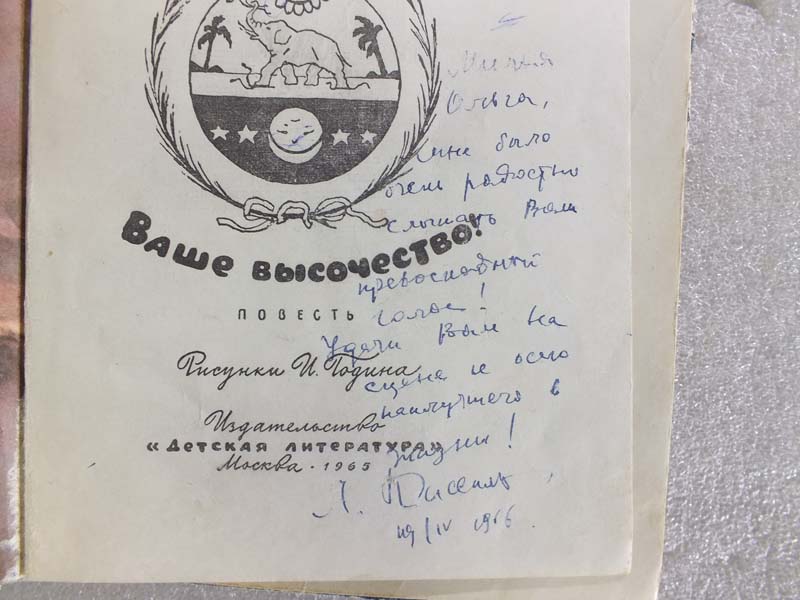 Ваше высочество!
ПОВЕСТЬ
Рисунки И. Година
Издательство
«Детская литература»
Москва · 1965
Милая
Ольга,
мне было
очень радостно
слышать Ваш
превосходный
голос!
Удачи Вам на
сцене и всего
наилучшего в
жизни!
Л. Кассиль
19/IV 1966.